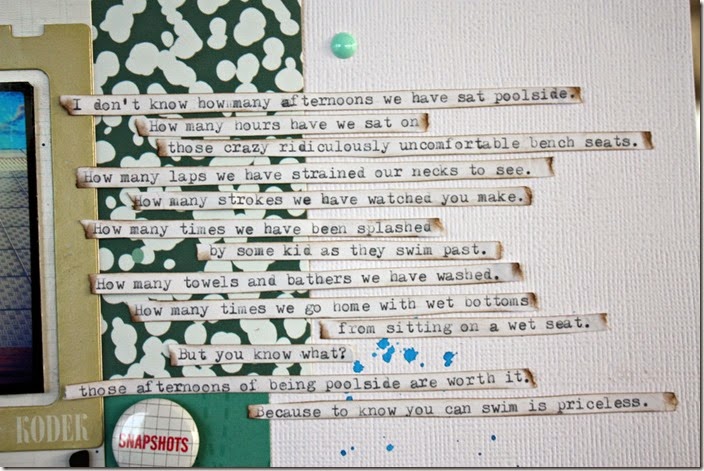 I don't know how many afternoons we have sat poolside.
How many hours have we sat on
those crazy ridiculously uncomfortable bench seats.
How many laps we have strained our necks to see.
How many strokes we have watched you make.
How many times we have been splashed
by some kid as they swim past.
How many towels and bathers we have washed.
How many times we go home with wet bottoms
from sitting on a wet seat.
But you know what?
those afternoons of being poolside are worth it.
Because to know you can swim is priceless.
KODER
SNAPSHOTS